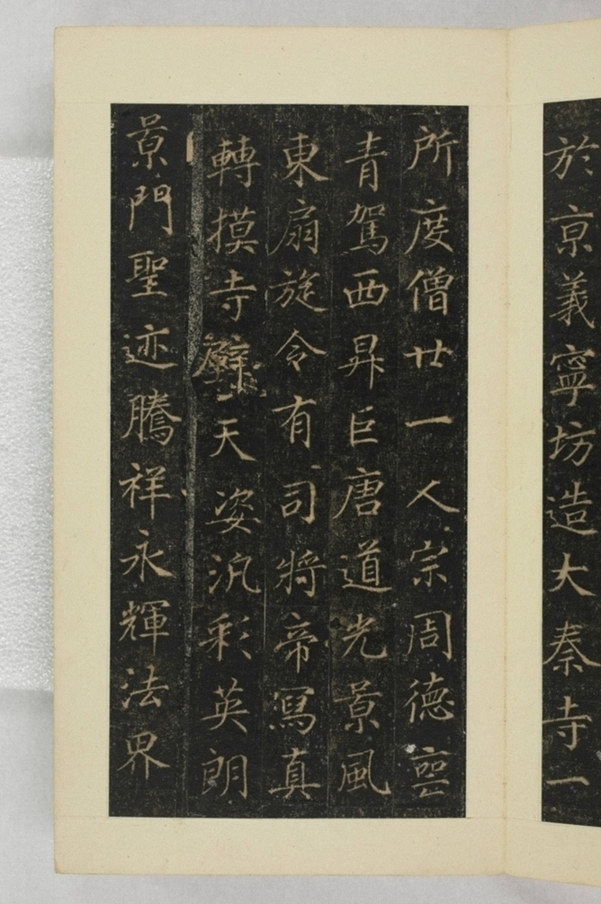 於京義寧坊造大秦寺一
所度僧廿一人宗周德喪
青駕西昇巨唐道光景風
東扇旋令有司將帝寫真
轉摸寺壁天姿汎彩英朗
景門聖迹騰祥永輝法界